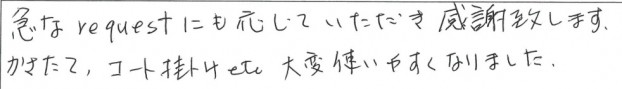 急な requestにも応じていただき感謝致します.
かさたて, コート掛け etc 大変使いやすくなりました.